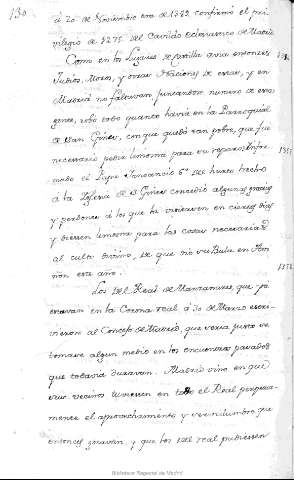 130
á 20 de Noviembre era de 1389 confirmó el pri-
vilegio de 1275 del Cavildo eclesiastico de Madrid
Como en los Lugares de Castilla avia entonces
Judios, Moros, y otras Naciones de estas, y en
Madrid no faltavan juntandose numero de esta
gente, robó todo quanto havia en la Parroquial
de San Gines, con que quedó tan pobre, que fue
necesario pedir limosna para su reparo. Infor-
mado el Papa Innocencio 6º del hurto hecho
á la Iglesia de S. Gines concedió algunas gracias
y perdones á los que la visitasen en ciertos dias
y diessen limosna para las cosas necesarias
al culto divino, de que dió su Bula en Avi-
ñon este año.
Los del Real de Manzanares, que ya
estavan en la Corona real á 30 de Marzo escri-
vieron al Concejo de Madrid, que seria justo se
tomase algun medio en los encuentros pasados
que todavia duravan. Madrid vino en que
sus vecinos tuviessen en todo el Real perpetua-
mente el aprovechamiento y servidumbre que
entonces gozavan, y que los del real pudiessen
Biblioteca Regional de Madrid